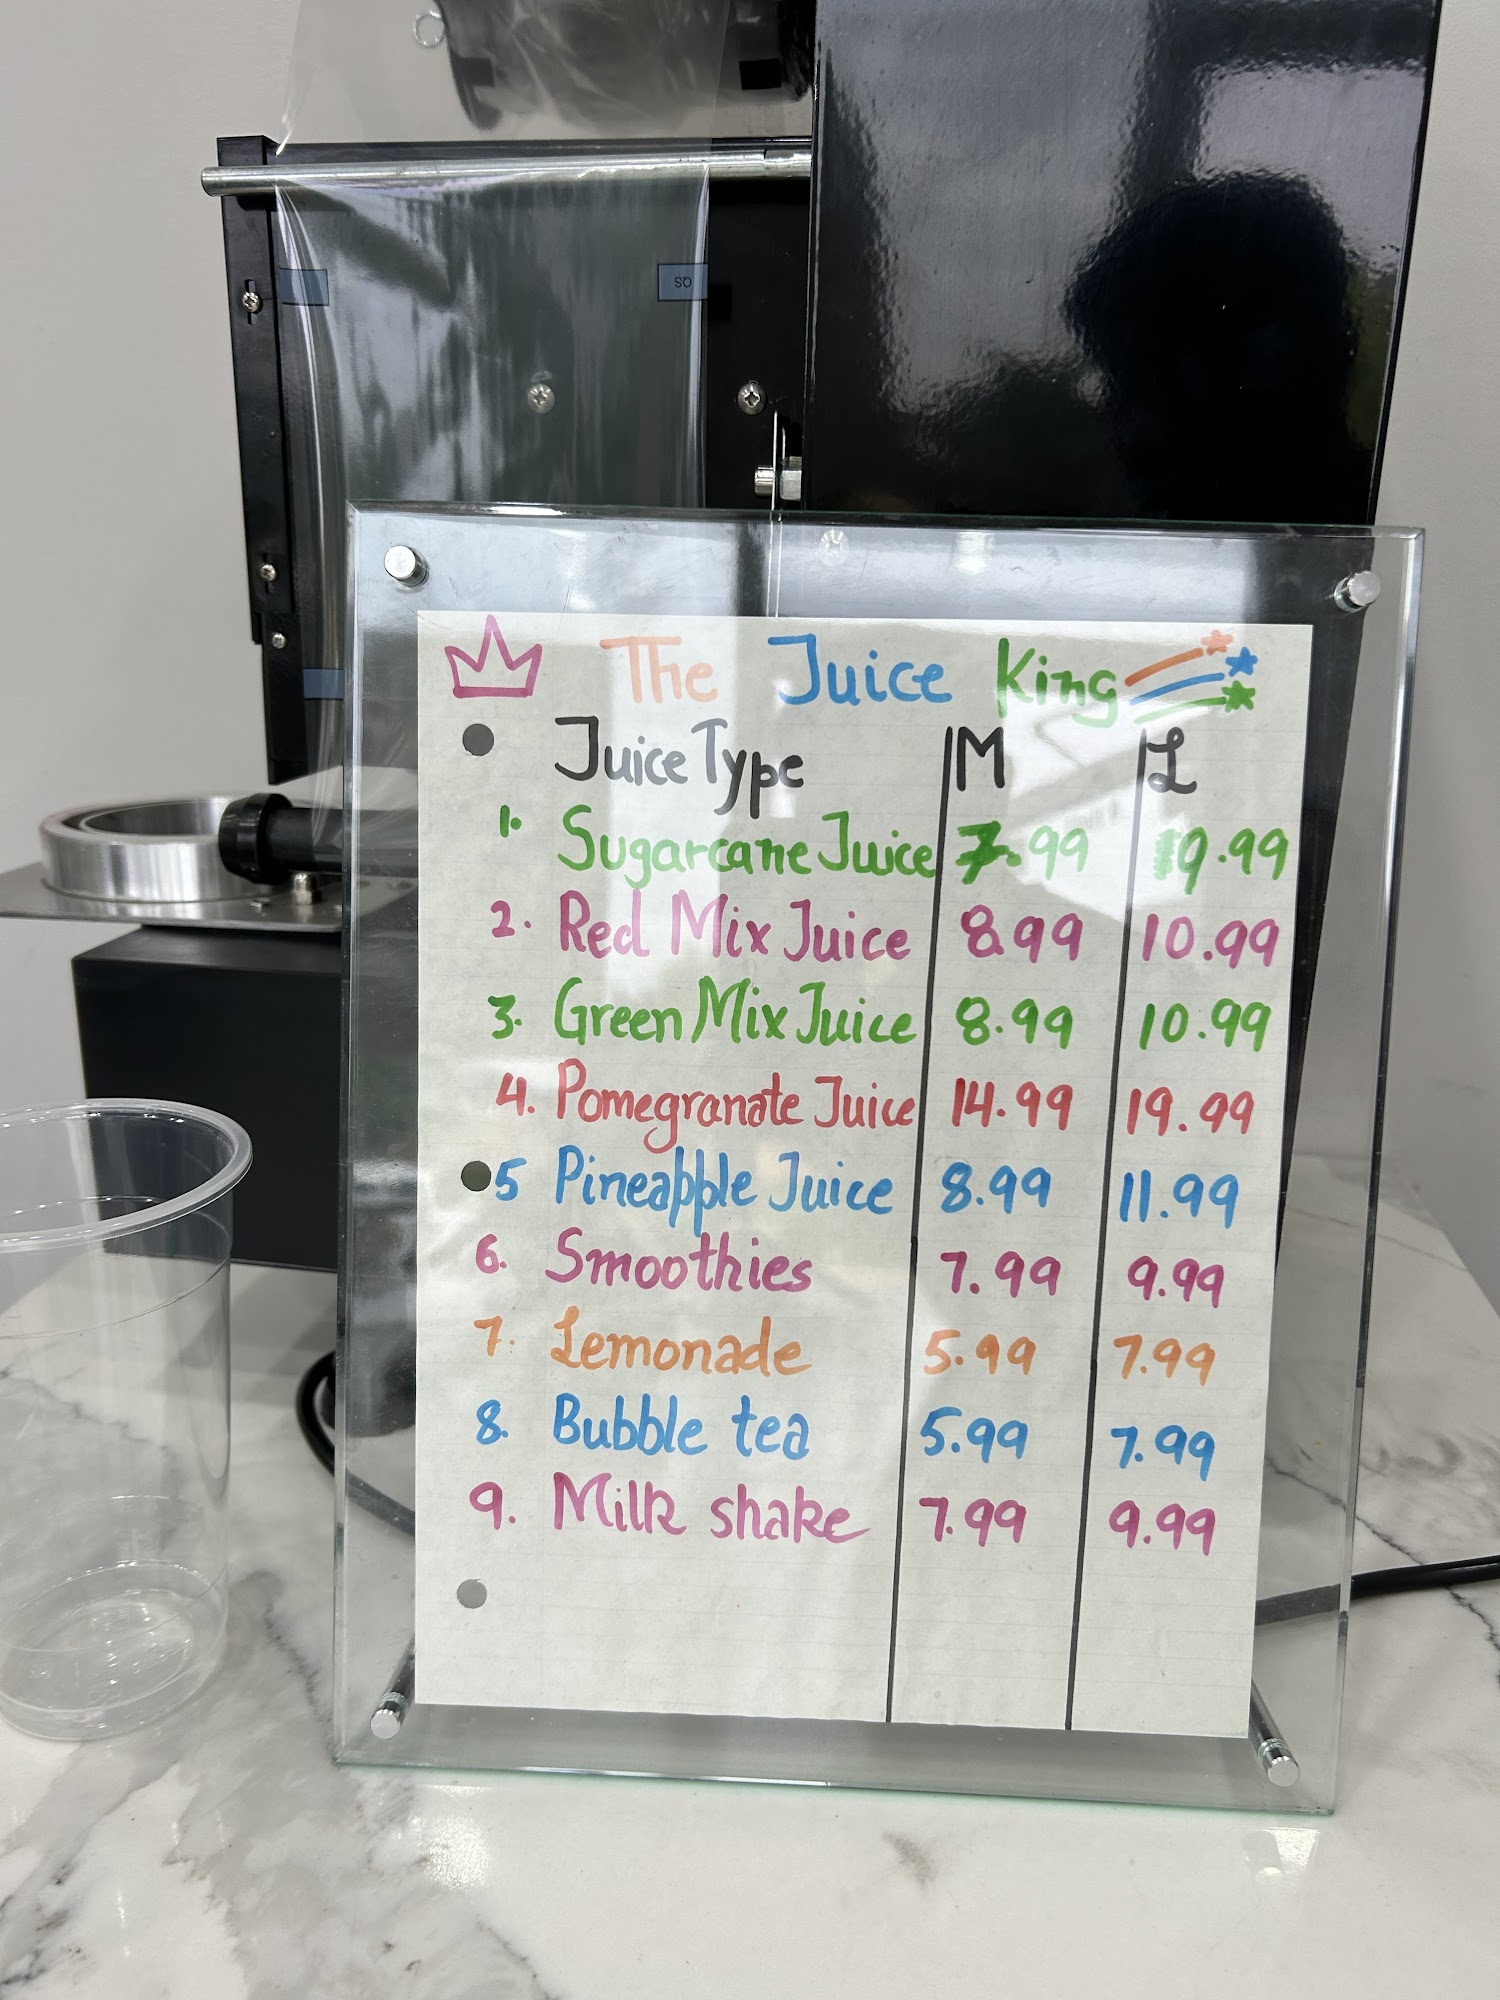 The Juice King
Juice Type M L
1. Sugarcane Juice 7.99 9.99
2. Red Mix Juice 8.99 10.99
3. Green Mix Juice 8.99 10.99
4. Pomegranate Juice 14.99 19.99
5 Pineapple Juice 8.99 11.99
6. Smoothies 7.99 9.99
7. Lemonade 5.99 7.99
8. Bubble tea 5.99 7.99
9. Milk shake 7.99 9.99